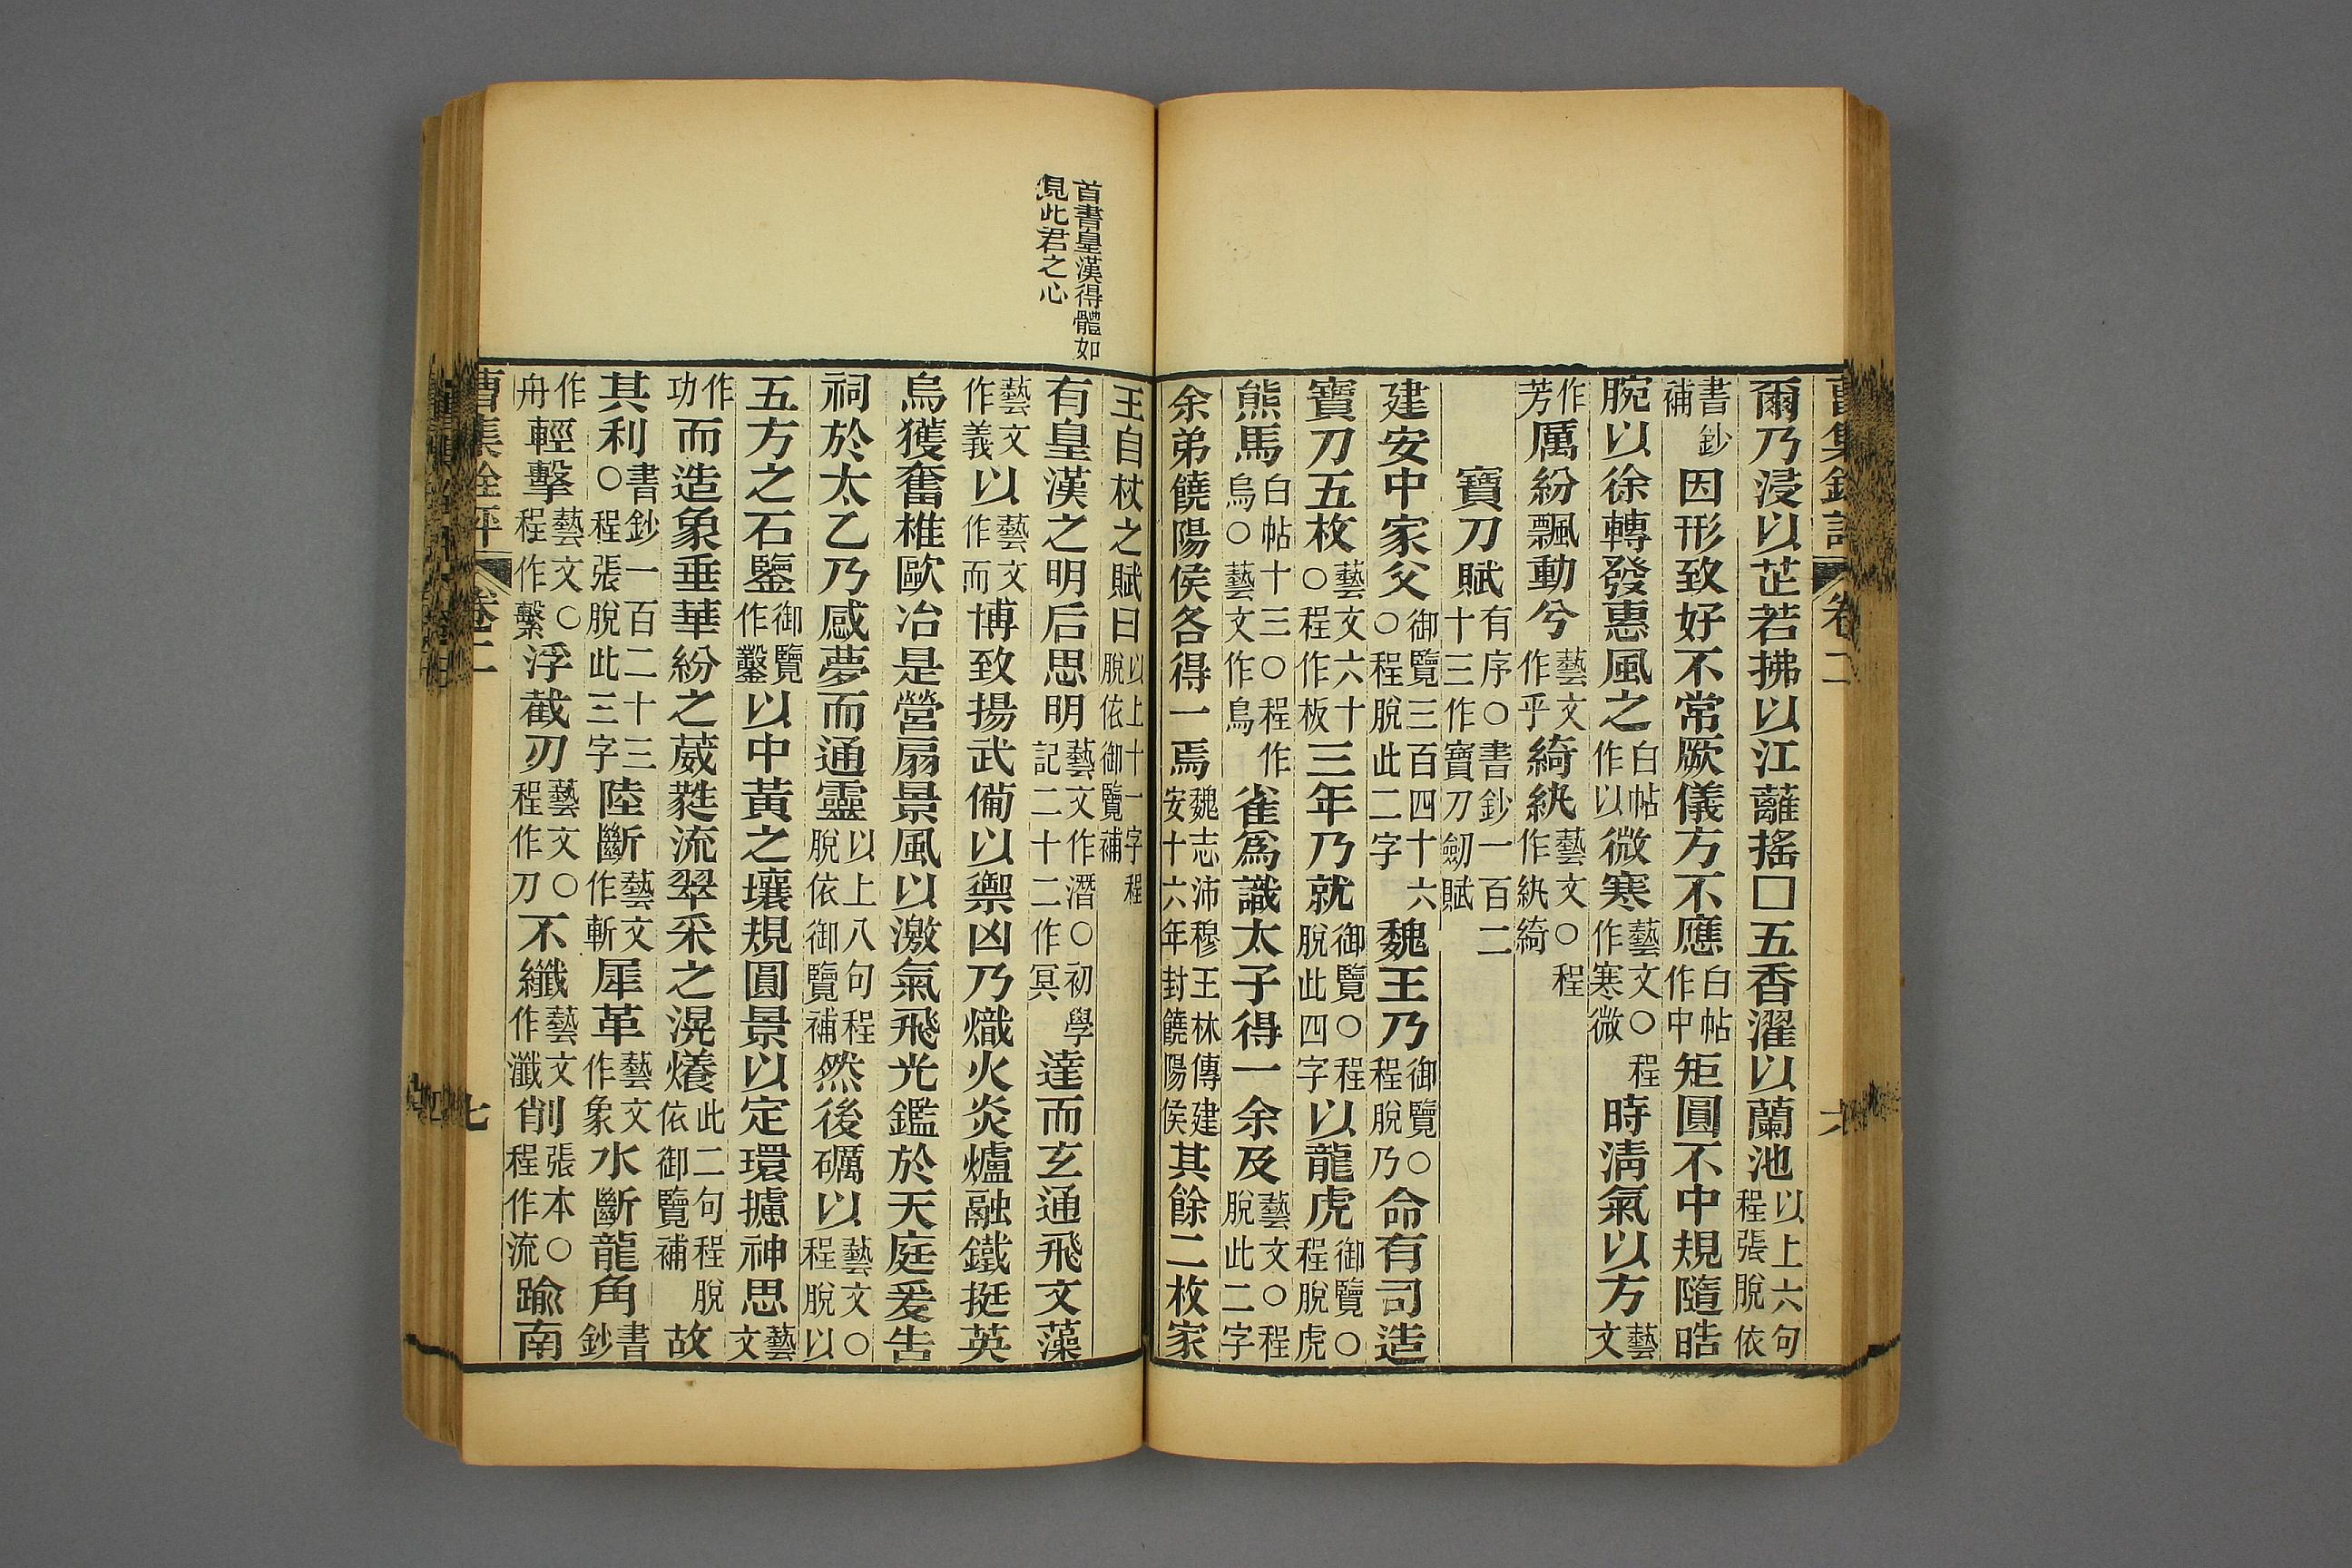 曹集銓評 卷二 六
爾乃浸以芷若拂以江蘺搖□五香濯以蘭池以上六句程張脫依
書鈔補因形致好不常厥儀方不應白帖作中矩圓不中規隨晧
腕以徐轉發惠風之白帖作以微寒藝文○程作寒微時淸氣以方藝文
作芳厲紛飄動兮藝文作乎綺紈藝文○程作紈綺
寶刀賦有序○書鈔一百二十三作寶刀劒賦
建安中家父御覽三百四十六○程脫此二字魏王乃御覽○程脫乃命有司造
寶刀五枚藝文六十○程作板三年乃就御覽○程脫此四字以龍虎御覽○程脫虎
熊馬白帖十三○程作烏○藝文作鳥雀爲識太子得一余及藝文○程脫此二字
余弟饒陽侯各得一焉魏志沛穆王林傳建安十六年封饒陽侯其餘二枚家
王自杖之賦曰以上十一字程脫依御覽補
首書皇漢得體如
見此君之心
有皇漢之明后思明藝文作潛○初學記二十二作冥達而玄通飛文藻
藝文作義以藝文作而博致揚武備以禦凶乃熾火炎爐融鐵挺英
烏獲奮椎歐冶是營扇景風以激氣飛光鑑於天庭爰告
祠於太乙乃感夢而通靈以上八句程脫依御覽補然後礪以藝文○程脫以
五方之石鑒御覽作鑿以中黃之壤規圓景以定環攄神思藝文
作功而造象垂華紛之葳蕤流翠采之滉瀁此二句程脫依御覽補故
其利書鈔一百二十三○程張脫此三字陸斷藝文作斬犀革藝文作象水斷龍角書鈔
作舟輕擊藝文○程作繫浮截刃藝文○程作刀不纖藝文作瀸削張本○程作流踰南
曹集銓評 卷二 七